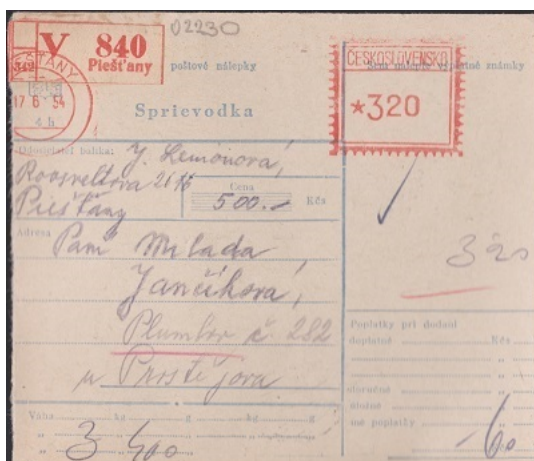 02230
V 840
Piešťany
poštové nálepky
ČESKOSLOVENSKO
*320
Sem nalepte výplatné známky
PIEŠŤANY
17 6 54
4 h
Sprievodka
Odosielateľ balíka: J. Lemonová,
Roosveltova 2616
Piešťany
Cena
500.- Kčs
Adresa
Pani Milada
Jančíková,
Plumlov č. 282
u Prostějova
3 20
Poplatky pri dodaní
doplatné Kčs
doručné
úložné
iné poplatky
-60
Váha kg g kg g
3 400